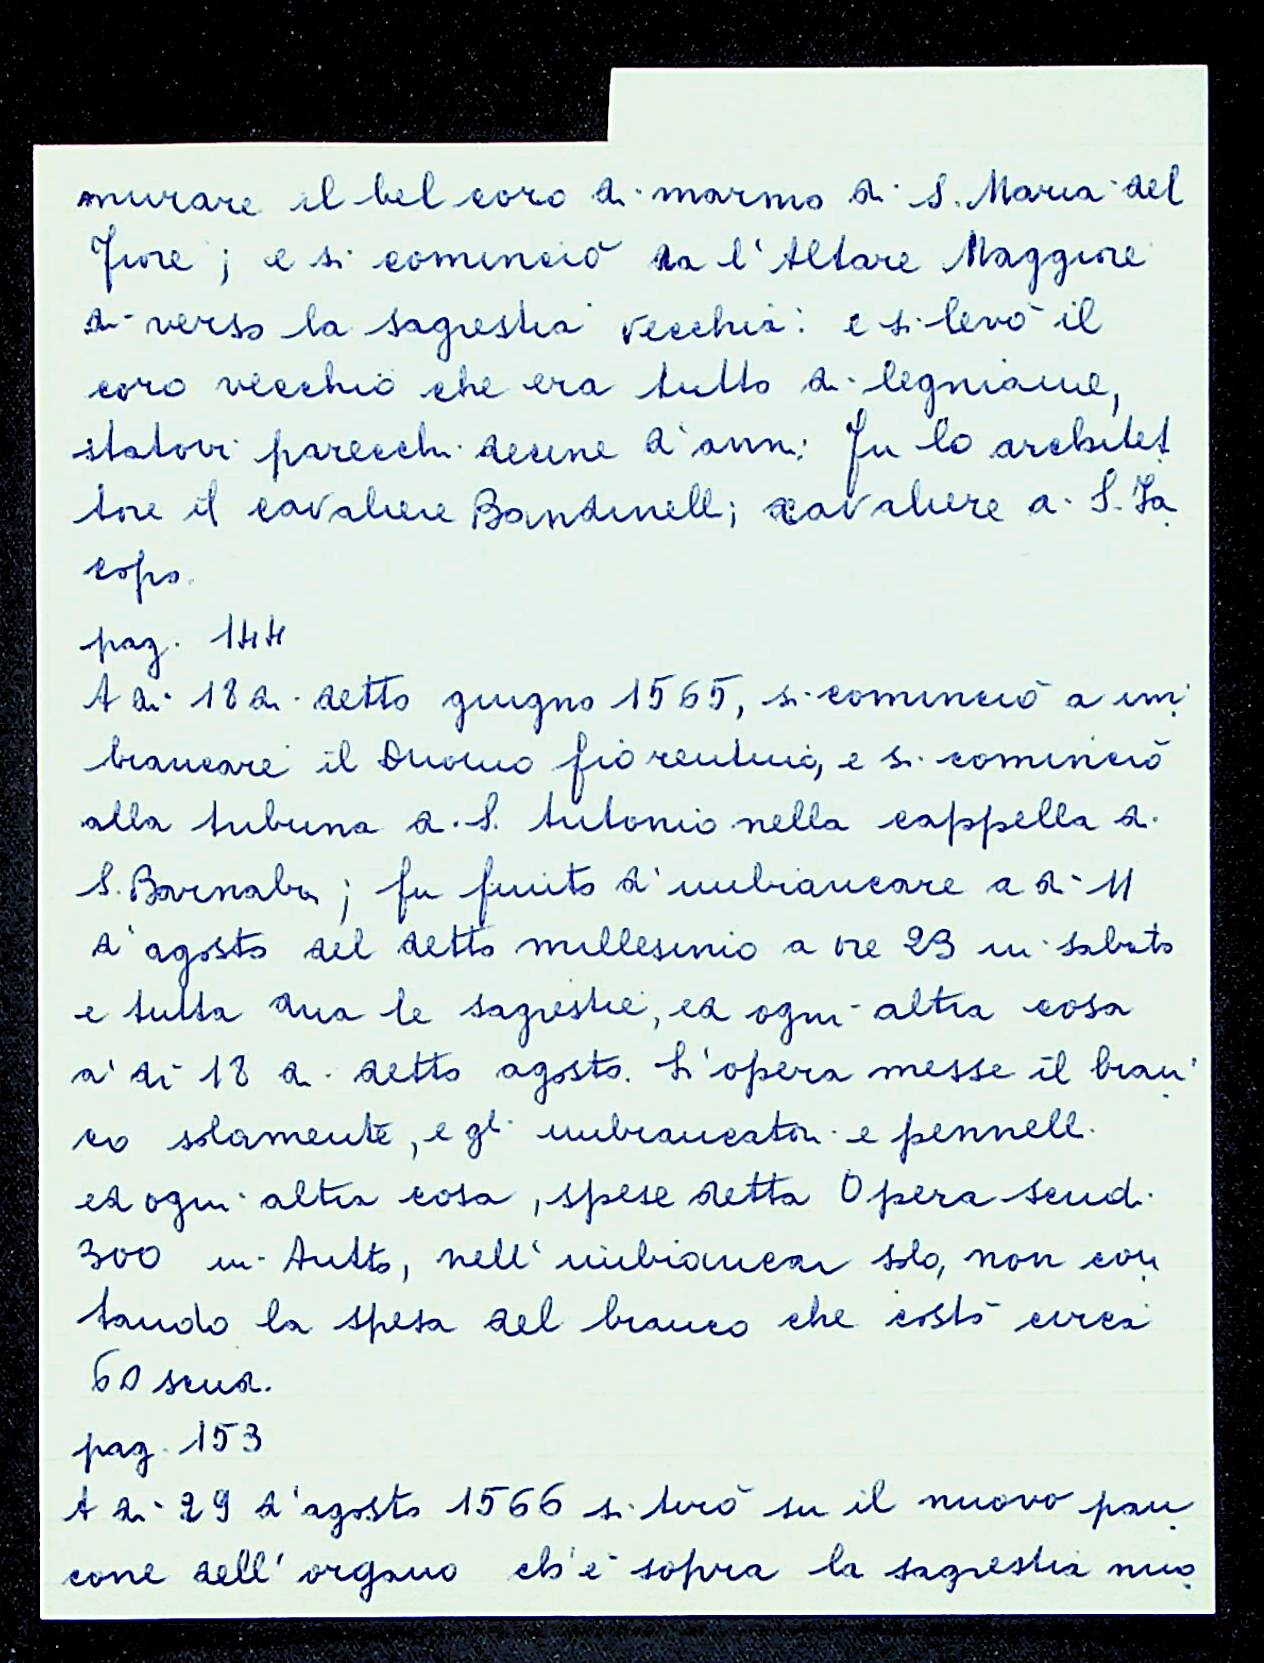 murare il bel coro di marmo di S. Maria del
Fiore; e si cominciò da l'Altare Maggiore
di verso la sagrestia vecchia: e si levò il
coro vecchio che era tutto di legniame,
statovi parecchi decine d'anni: Fu lo architet
tore il cavaliere Bandinelli; cavaliere di S. Ja
copo.
pag. 144
A di 18 di detto giugno 1565, si cominciò a im
biancare il Duomo fiorentino, e si cominciò
alla tribuna di S. Antonio nella cappella di
S. Barnaba; fu finito d'imbiancare a di 11
d'agosto del detto millesimo a ore 23 in sabato
e tutta dua le sagrestie, ed ogni altra cosa
a' di 18 di detto agosto. L'opera messe il bian
co solamente, e gli imbiancatori e pennelli
ed ogni altra cosa, spese detta Opera scudi
300 in tutto, nell'imbiancar solo, non con
tando la spesa del bianco che costò circa
60 scud.
pag. 153
A di 29 d'agosto 1566 si tirò su il nuovo pan
cone dell'organo ch'è sopra la sagrestia nuo